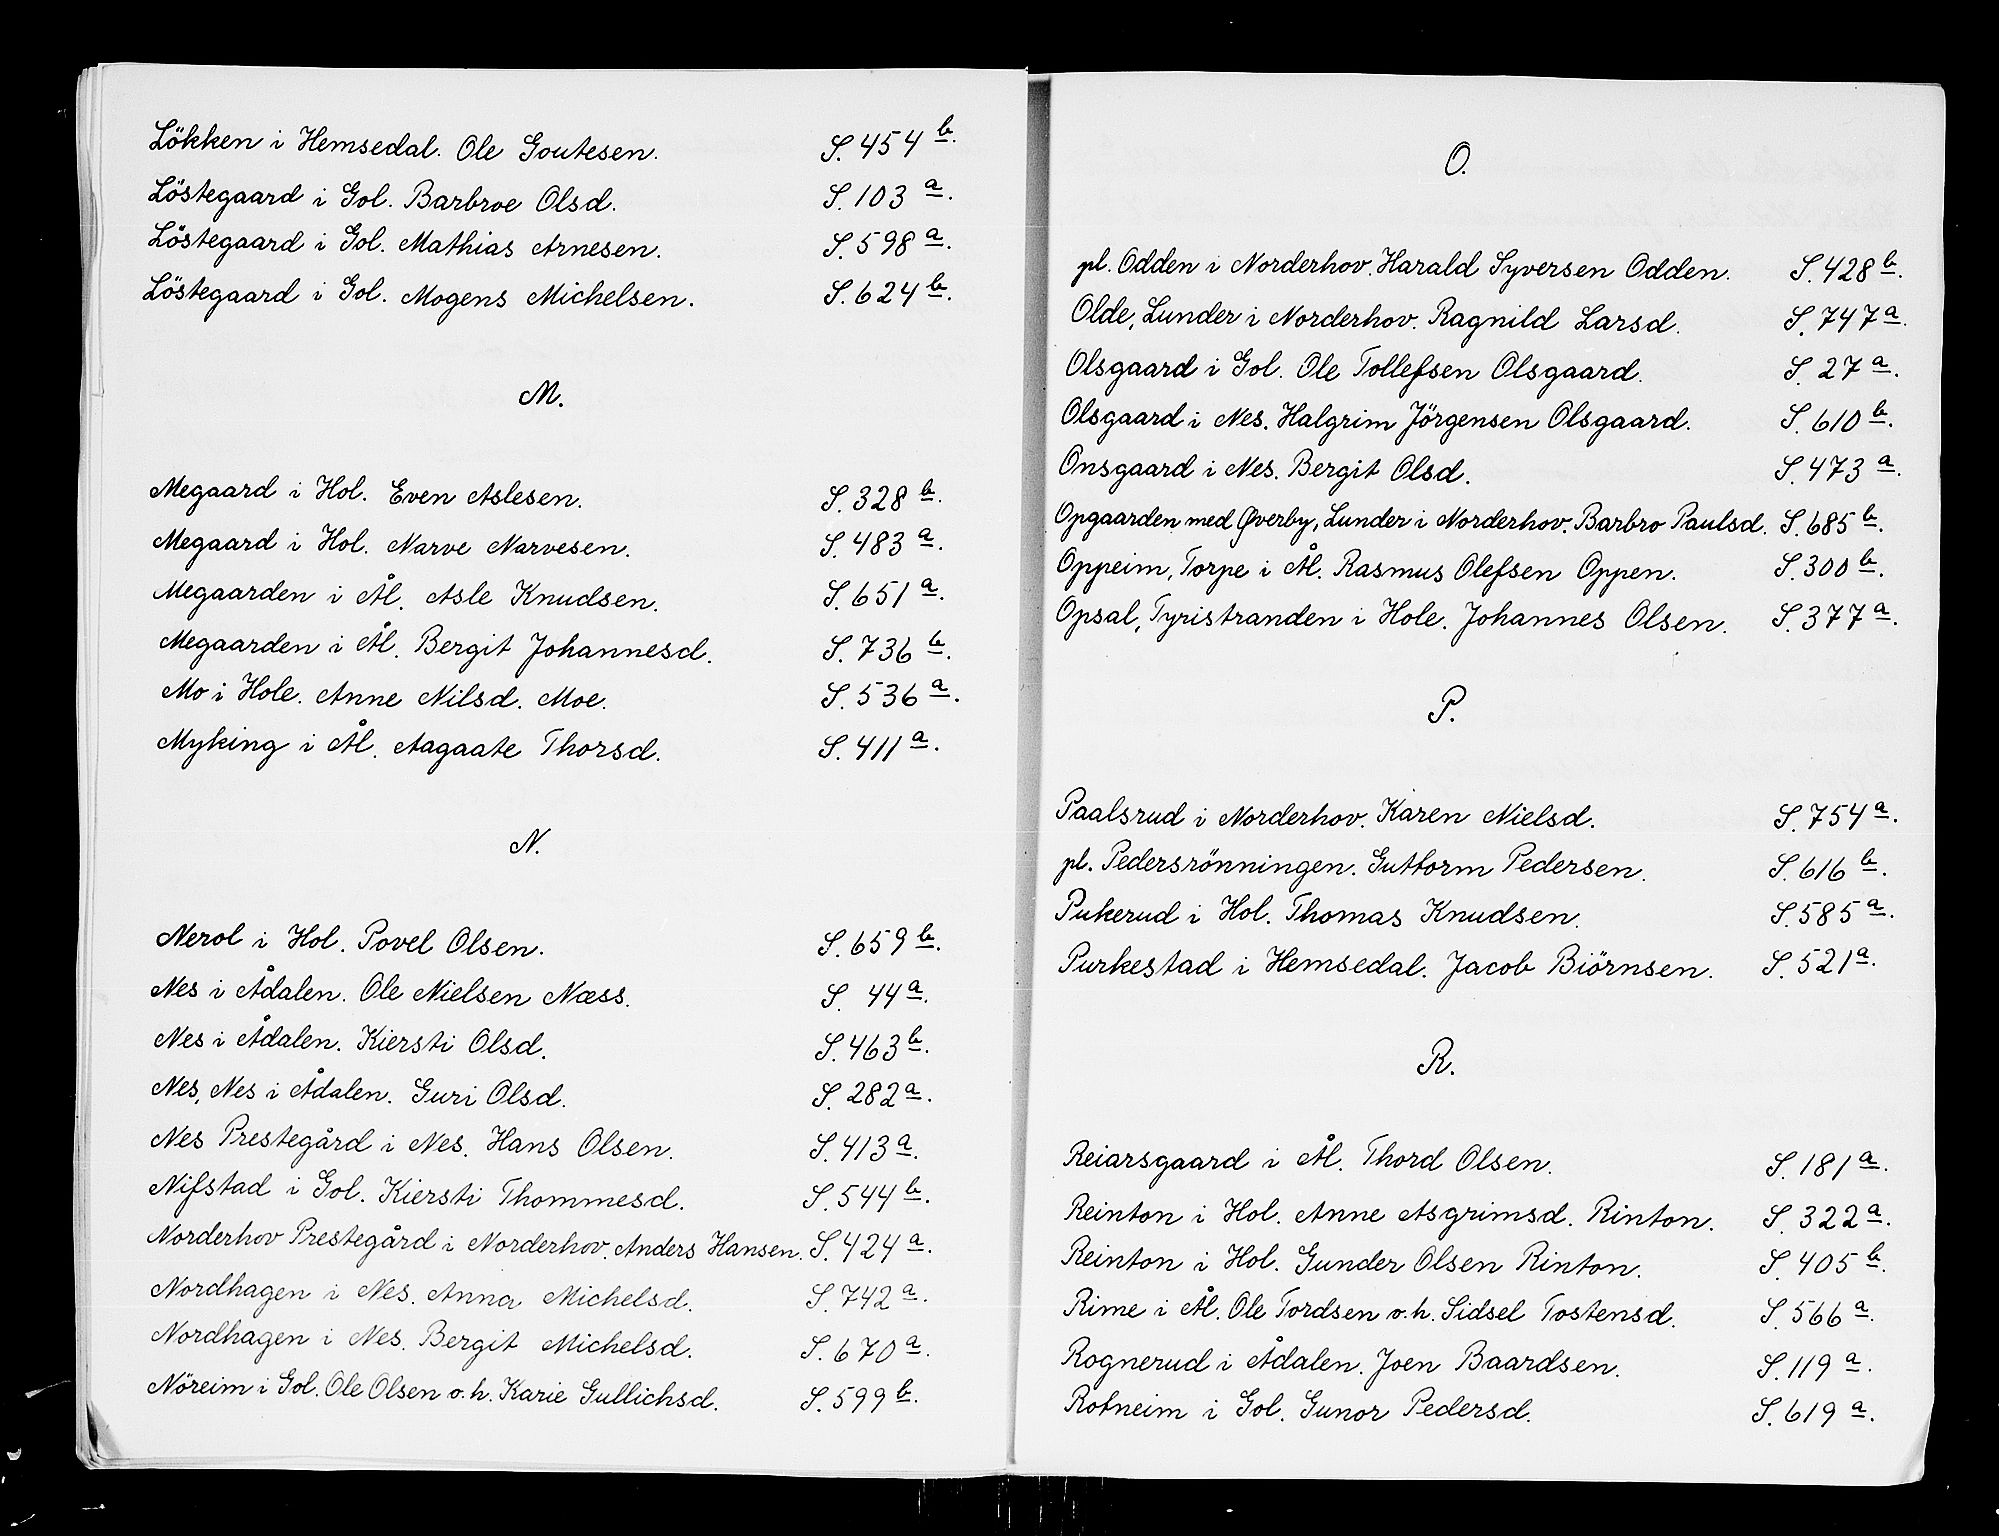 Lökken i Hemsedal. Ole Goutesen. S. 454 b.
Löstegaard i Gol. Barbroe Olsd. S. 103 a.
Löstegaard i Gol. Mathias Arnesen. S. 598 a.
Löstegaard i Gol. Mogens Michelsen. S. 624 b.
M.
Megaard i Hol. Even Aslesen. S. 328 b.
Megaard i Hol. Narve Narvesen. S. 483 a.
Megaarden i Ål. Asle Knudsen. S. 651 a.
Megaarden i Ål. Bergit Johannesd. S. 736 b.
Mo i Hole. Anne Nilsd. Moe. S. 536 a.
Myking i Ål. Aagaate Thorsd. S. 411 a.
N.
Nerol i Hol. Povel Olsen. S. 659 b.
Nes i Ådalen. Ole Nielsen Næss. S. 44 a.
Nes i Ådalen. Kiersti Olsd. S. 463 b.
Nes, Nes i Ådalen. Guri Olsd. S. 282 a.
Nes Prestegård i Nes. Hans Olsen. S. 413 a.
Nifstad i Gol. Kiersti Thommesd. S. 544 b.
Norderhov Prestegård i Norderhov. Anders Hansen. S. 424 a.
Nordhagen i Nes. Anna Michelsd. S. 742 a.
Nordhagen i Nes. Bergit Michelsd. S. 670 a.
Nöreim i Gol. Ole Olsen o.h. Karie Gullichsd. S. 599 b.
O.
pl. Odden i Norderhov. Harald Syversen Odden. S. 428 b.
Olde, Lunder i Norderhov. Ragnild Larsd. S. 747 a.
Olsgaard i Gol. Ole Tollefsen Olsgaard. S. 27 a.
Olsgaard i Nes. Halgrim Jörgensen Olsgaard. S. 610 b.
Onsgaard i Nes. Bergit Olsd. S. 473 a.
Opgaarden med Øverby, Lunder i Norderhov. Barbro Paulsd. S. 685 b.
Oppeim, Torpe i Ål. Rasmus Olefsen Oppen. S. 300 b.
Opsal, Tyristranden i Hole. Johannes Olsen. S. 377 a.
P.
Paalsrud i Norderhov. Karen Nielsd. S. 754 a.
pl. Pedersrönningen. Guttorm Pedersen. S. 616 b.
Pukerud i Hol. Thomas Knudsen. S. 585 a.
Purkestad i Hemsedal. Jacob Biörnsen. S. 521 a.
R.
Reiarsgaard i Ål. Thord Olsen. S. 181 a.
Reinton i Hol. Anne Asgrimsd. Rinton. S. 322 a.
Reinton i Hol. Gunder Olsen Rinton. S. 405 b.
Rime i Ål. Ole Tordsen o.h. Sidsel Tostensd. S. 566 a.
Rognerud i Ådalen. Joen Baardsen. S. 119 a.
Rotneim i Gol. Gunor Pedersd. S. 619 a.